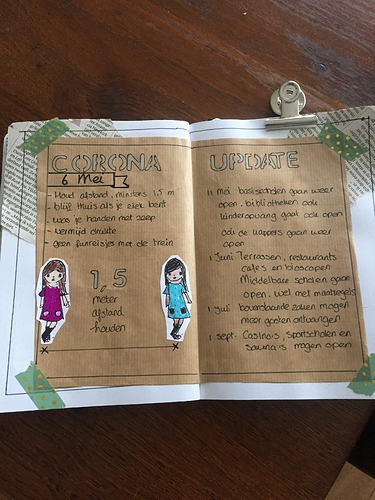 CORONA
6 Mei
- Houd afstand, minstens 1,5 m
- blijf thuis als je ziek bent
- was je handen met zeep
- vermijd drukte
- geen funreisjes met de trein
1,5
meter
afstand
houden
UPDATE
11 mei basisscholen gaan weer
open, bibliotheken ook
kinderopvang gaat ook open
ook de kappers gaan weer
open
1 juni Terrassen, restaurants
cafes en bioscopen
Middelbare scholen gaan
open. wel met maatregels
1 juli bovenstaande zaken mogen
meer gasten ontvangen
1 sept. Casino's, sportscholen en
sauna's mogen open